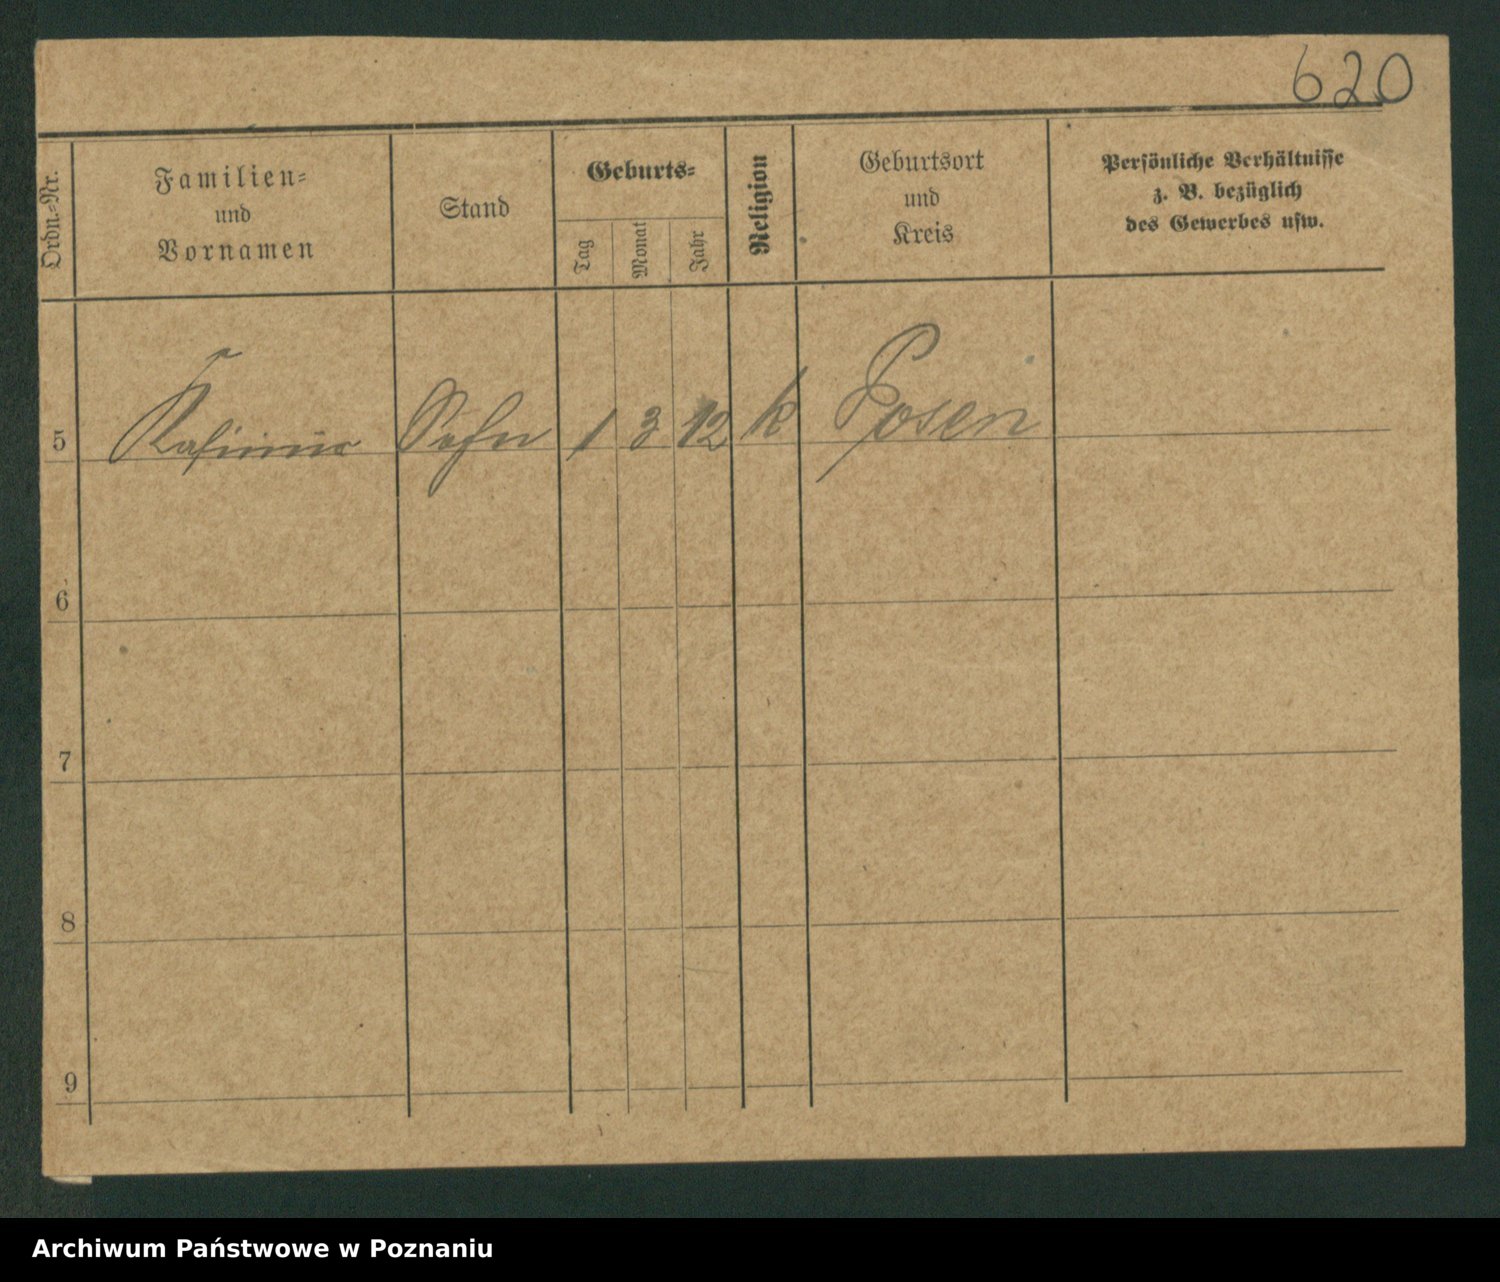 620
Ordn.-Nr.
Familien-
und
Vornamen
Stand
Geburts-
Tag
Monat
Jahr
Religion
Geburtsort
und
Kreis
Persönliche Verhältnisse
z. B. bezüglich
des Gewerbes usw.
5 Kasimir Sohn 1 3 12 k Posen
6
7
8
9
Archiwum Państwowe w Poznaniu